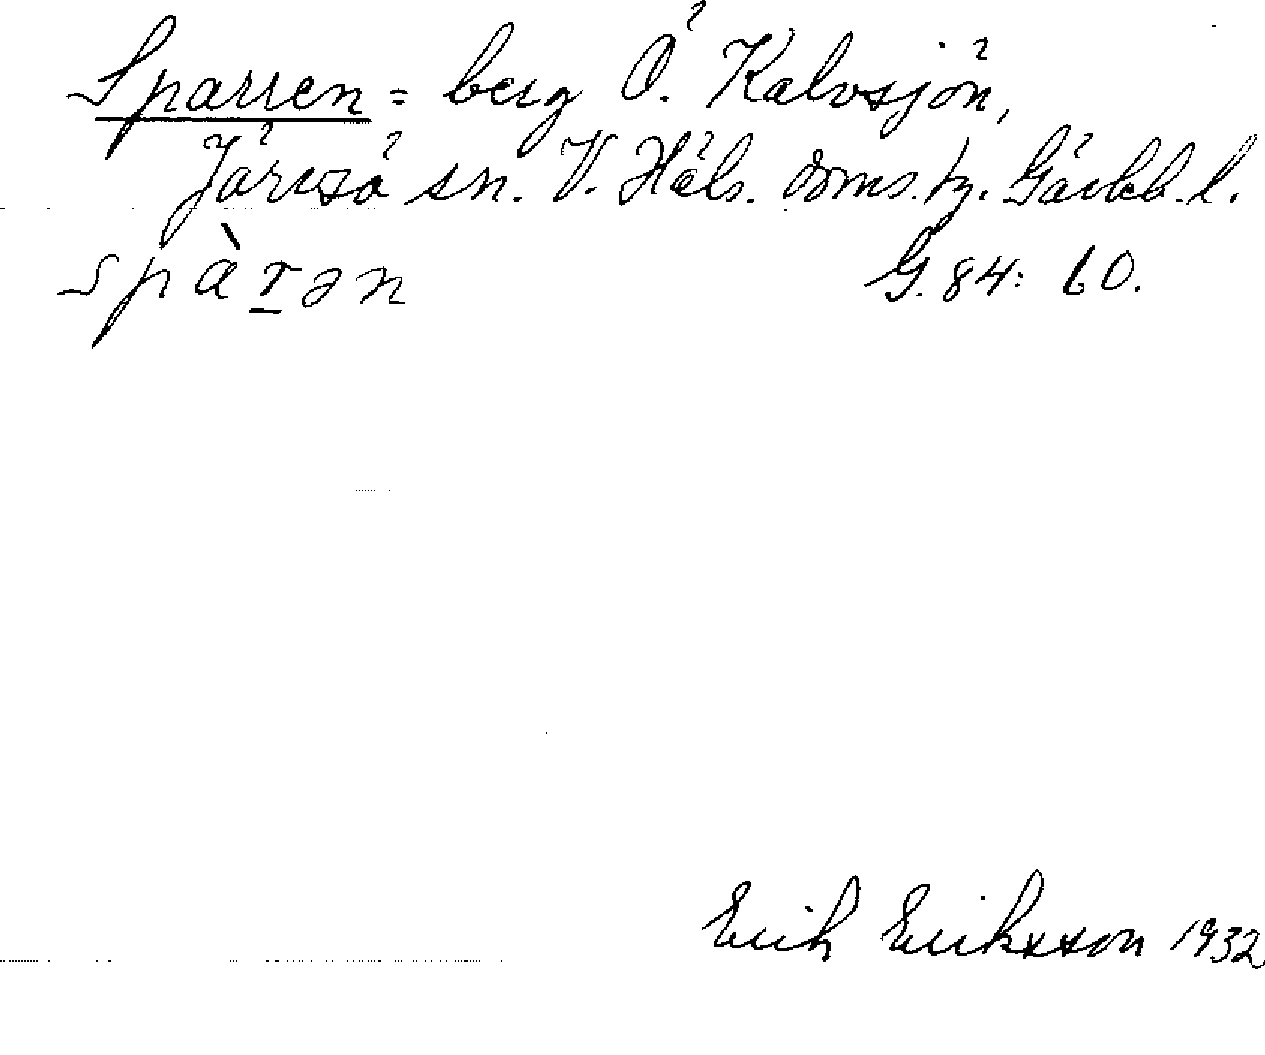 Sparren = berg Ö. Kalvsjön,
Järvsö sn. V. Häls. doms.hg. Gävleb. l.
spàrən G. 84: 60.
Erik Eriksson 1932